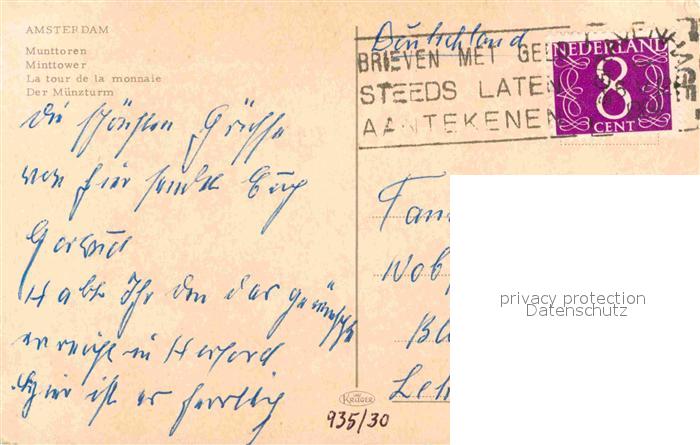 AMSTERDAM
Munttoren
Minttower
La tour de la monnaie
Der Münzturm
Deutschland
BRIEVEN MET GELD
STEEDS LATEN
AANTEKENEN
NEDERLAND
8
CENT
die schönsten Grüße
von hier sendet Euch
Habt Ihr den das gewünschte
erreicht in Herford
Hier ist es herrlich
Fam
Wob
Bl
Leh
privacy protection
Datenschutz
KRÜGER
935/30